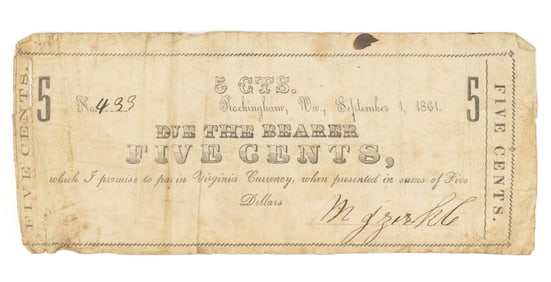 FIVE CENTS.
5
5 CTS.
5
No. 433
Rockingham, Va., September 1, 1861.
DUE THE BEARER
FIVE CENTS,
which I promise to pay in Virginia Currency, when presented in sums of Five
Dollars
FIVE CENTS.